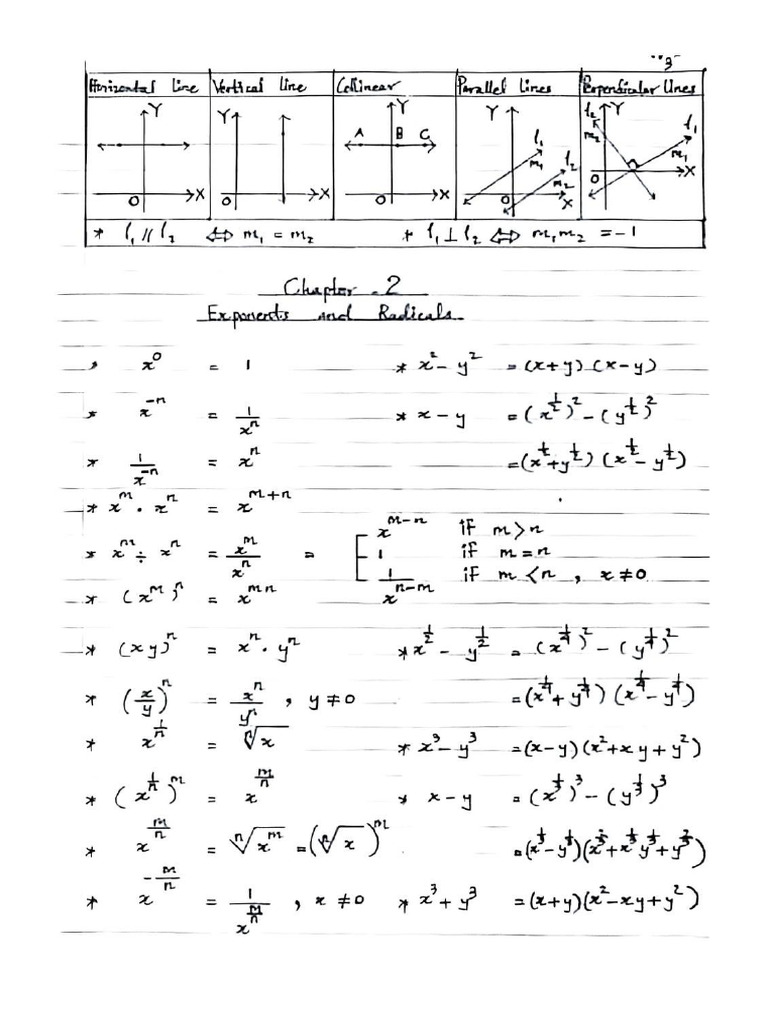 3
Horizontal Line Vertical Line Collinear Parallel Lines Perpendicular Lines
Y Y A B C Y Y l₁ m₁ l₂ m₂ l₂ m₂ Y l₁ m₁
O X O X O X O X O X
* l₁ // l₂ ⇔ m₁ = m₂ * l₁ ⊥ l₂ ⇔ m₁m₂ = -1
Chapter - 2
Exponents and Radicals
* x⁰ = 1 * x² - y² = (x+y) (x-y)
* x^{-n} = 1/x^n * x - y = (x^{1/2})² - (y^{1/2})²
* 1/x^{-n} = x^n = (x^{1/2} + y^{1/2}) (x^{1/2} - y^{1/2})
* x^m · x^n = x^{m+n}
* x^m ÷ x^n = x^m/x^n = [ x^{m-n} if m > n
1 if m = n
1/x^{n-m} if m < n , x ≠ 0
* (x^m)^n = x^{mn}
* (xy)^n = x^n · y^n * x^{1/2} - y^{1/2} = (x^{1/4})² - (y^{1/4})²
* (x/y)^n = x^n/y^n , y ≠ 0 = (x^{1/4} + y^{1/4}) (x^{1/4} - y^{1/4})
* x^{1/n} = ⁿ√x * x³ - y³ = (x-y)(x² + xy + y²)
* (x^{1/n})^m = x^{m/n} * x - y = (x^{1/3})³ - (y^{1/3})³
* x^{m/n} = ⁿ√x^m = (ⁿ√x)^m = (x^{1/3} - y^{1/3})(x^{2/3} + x^{1/3}y^{1/3} + y^{2/3})
* x^{-m/n} = 1/x^{m/n} , x ≠ 0 * x³ + y³ = (x+y)(x² - xy + y²)